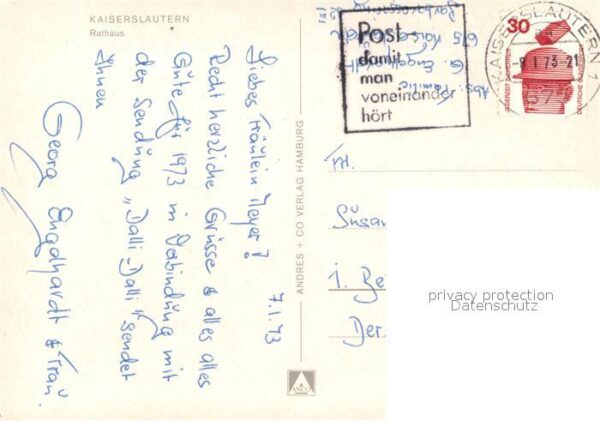 KAISERSLAUTERN
Rathaus
7.1.73
Liebes Fräulein Meyer!
Recht herzliche Grüsse & alles alles
Gute für 1973 in Verbindung mit
der Sendung „Dalli-Dalli" sendet
Ihnen
Georg Engelhardt & Frau.
ANDRES + CO VERLAG HAMBURG
ANCO
Post-
damit
man
voneinander
hört
KAISERSLAUTERN 1
-8.1.73-21
675
30
JEDERZEIT SICHERHEIT
DEUTSCHE BUNDESPOST
Abs: Familie
G. Engelhardt
675
Frl.
Susan
1. Be
Der
privacy protection
Datenschutz